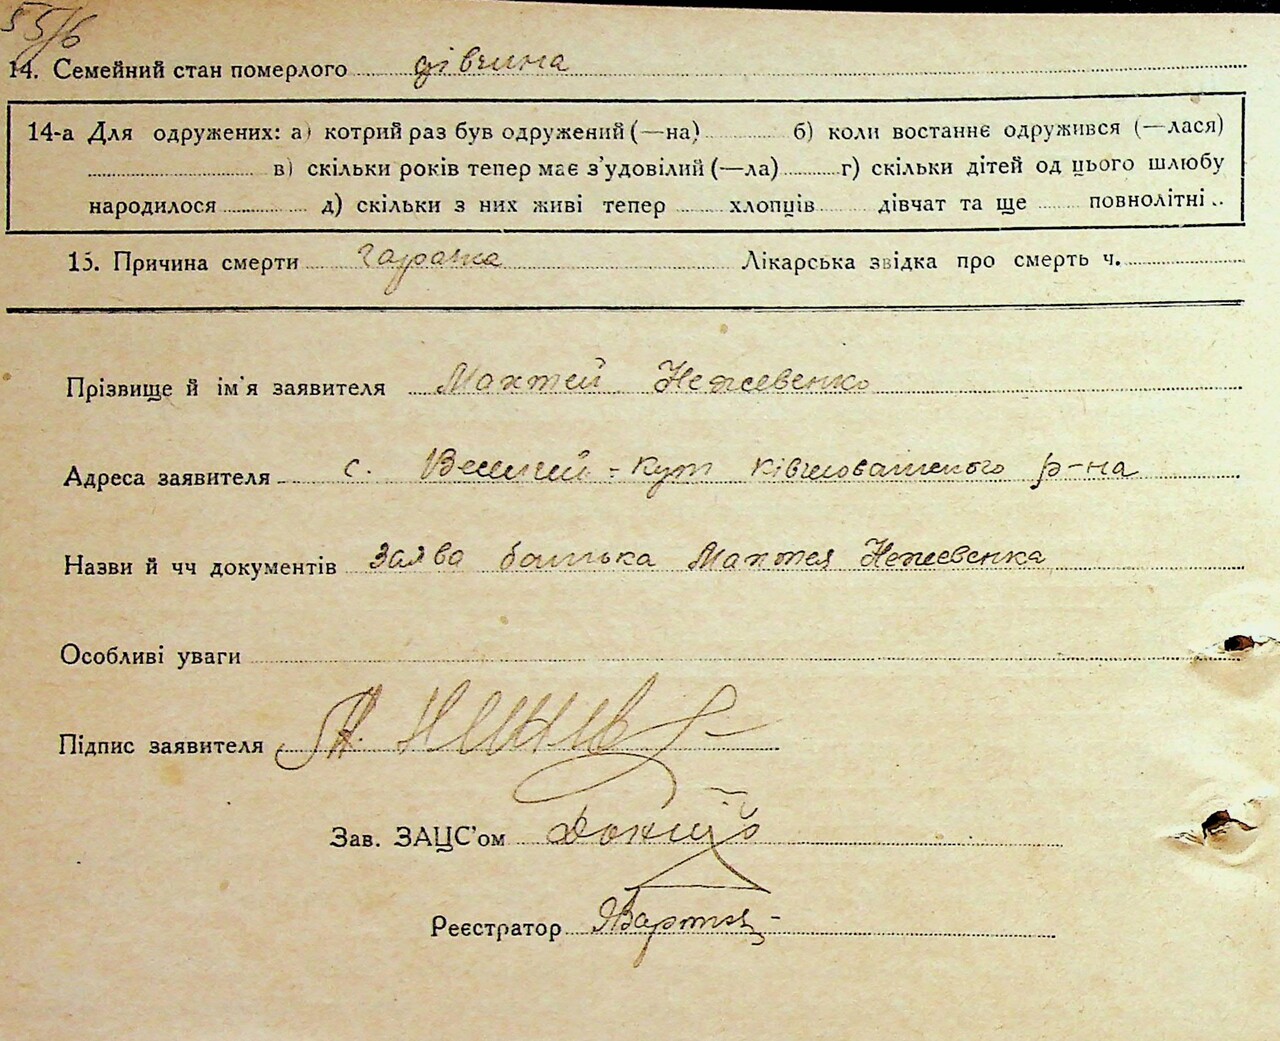 55/6
14. Семейний стан померлого дівчина
14-а Для одружених: а) котрий раз був одружений (—на) б) коли востаннє одружився (—лася)
в) скільки років тепер має з'удовілий (—ла) г) скільки дітей од цього шлюбу
народилося д) скільки з них живі тепер хлопців дівчат та ще повнолітні
15. Причина смерти гарячка Лікарська звідка про смерть ч.
Прізвище й ім'я заявителя Махтей Нежевенко
Адреса заявителя с. Великий-Кут Ківшоватського р-на
Назви й чч документів Заява батька Махтея Нежевенка
Особливі уваги
Підпис заявителя
Зав. ЗАЦС'ом
Реєстратор